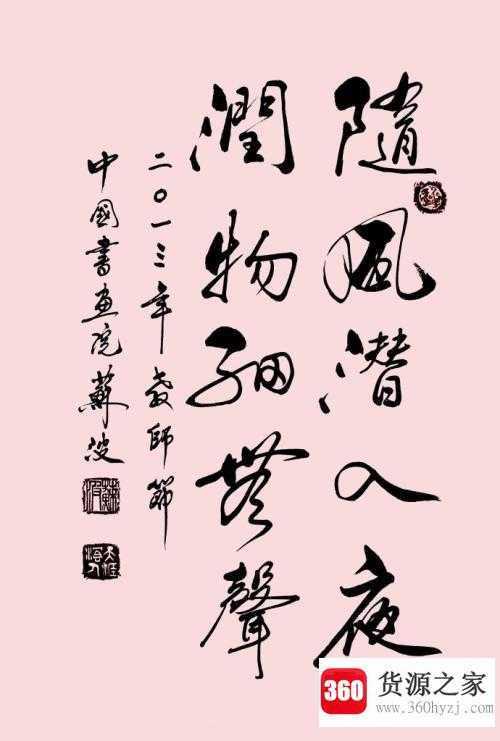 隨風潜入夜
潤物細無聲
二〇一三年教師節
中國書畫院蘇波
360
货源之家
www.360hyzj.com